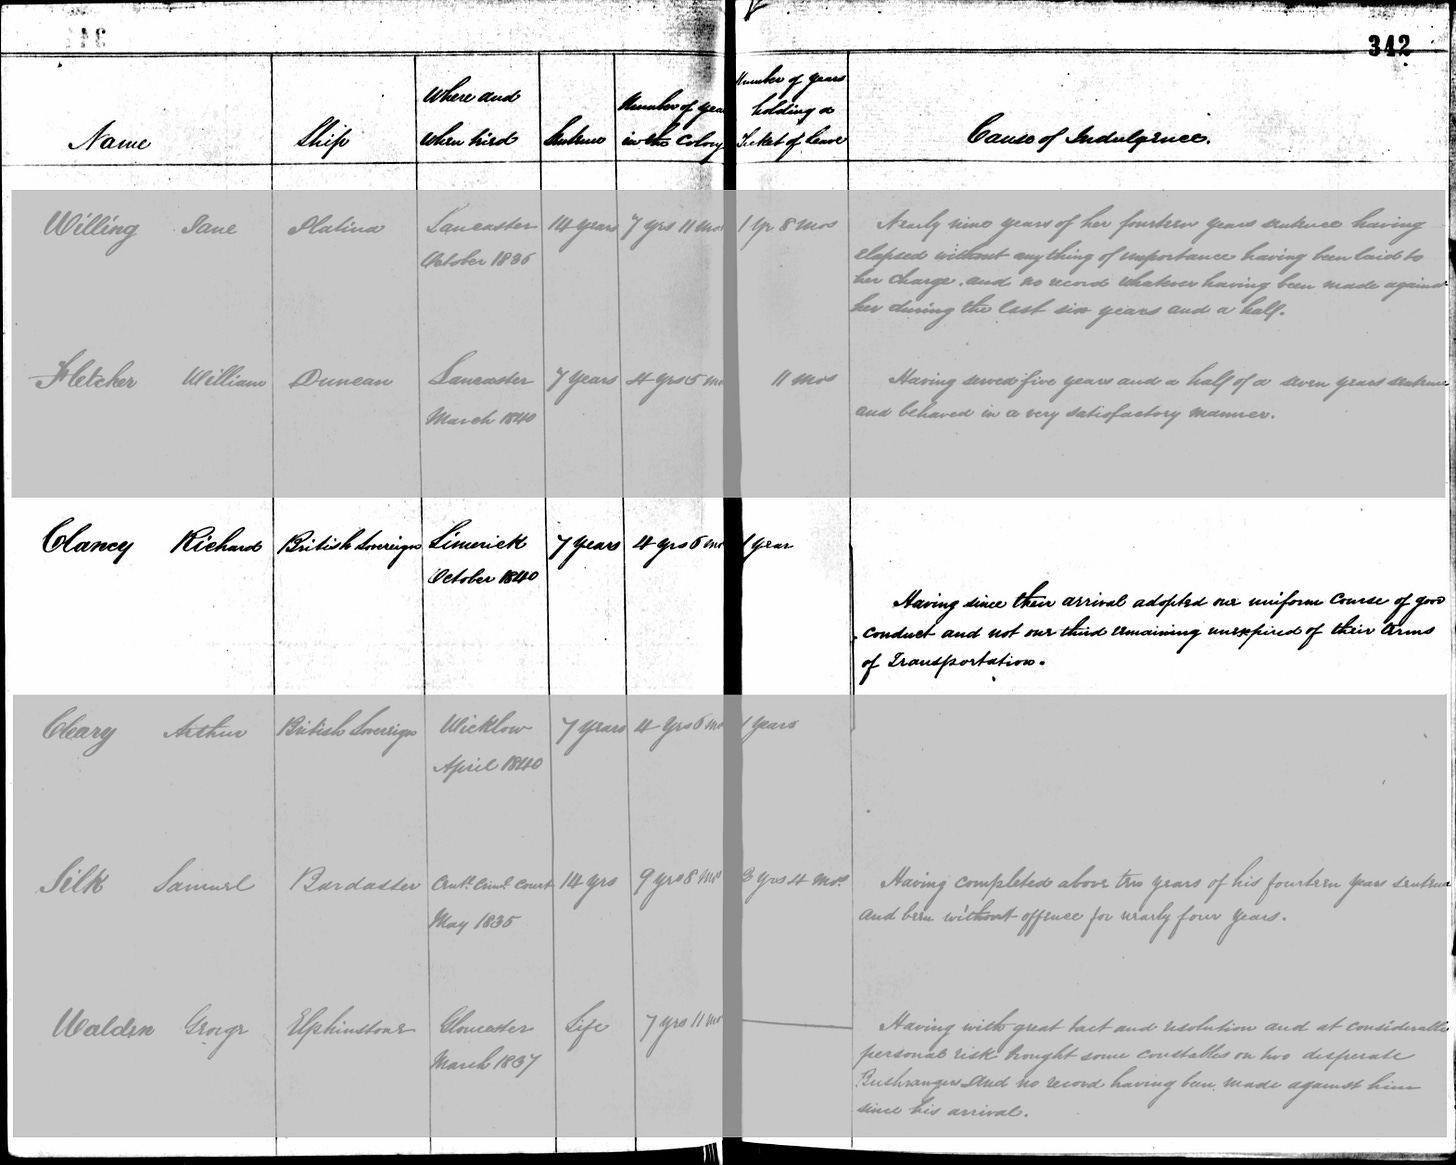 342
Name Ship Where and when tried Sentence Number of years in the Colony Number of years holding a Ticket of leave Cause of Indulgence.
Willing Jane Platina Lancaster 14 years 7 yrs 11 mos 1 yr 8 mos
October 1836
Nearly nine years of her fourteen years sentence having
elapsed without anything of importance having been laid to
her charge, and no record whatever having been made against
her during the last six years and a half.
Fletcher William Duncan Lancaster 7 years 4 yrs 5 mo 11 mos
March 1840
Having served five years and a half of a seven years sentence
and behaved in a very satisfactory manner.
Clancy Richard British Sovereign Limerick 7 years 4 yrs 6 mo 1 year
October 1840
Having since their arrival adopted one uniform course of good
conduct and not one third remaining unexpired of their terms
of Transportation.
Cleary Arthur British Sovereign Wicklow 7 years 4 yrs 6 mo 1 years
April 1840
Silk Samuel Bardaster Centl. Criml. Court 14 yrs 9 yrs 8 mos 3 yrs 4 mos.
May 1835
Having completed above ten years of his fourteen years sentence
and been without offence for nearly four years.
Walden George Elphinstone Gloucester Life 7 yrs 11 mo
March 1837
Having with great tact and resolution and at considerable
personal risk brought some constables on two desperate
Bushrangers and no record having been made against him
since his arrival.